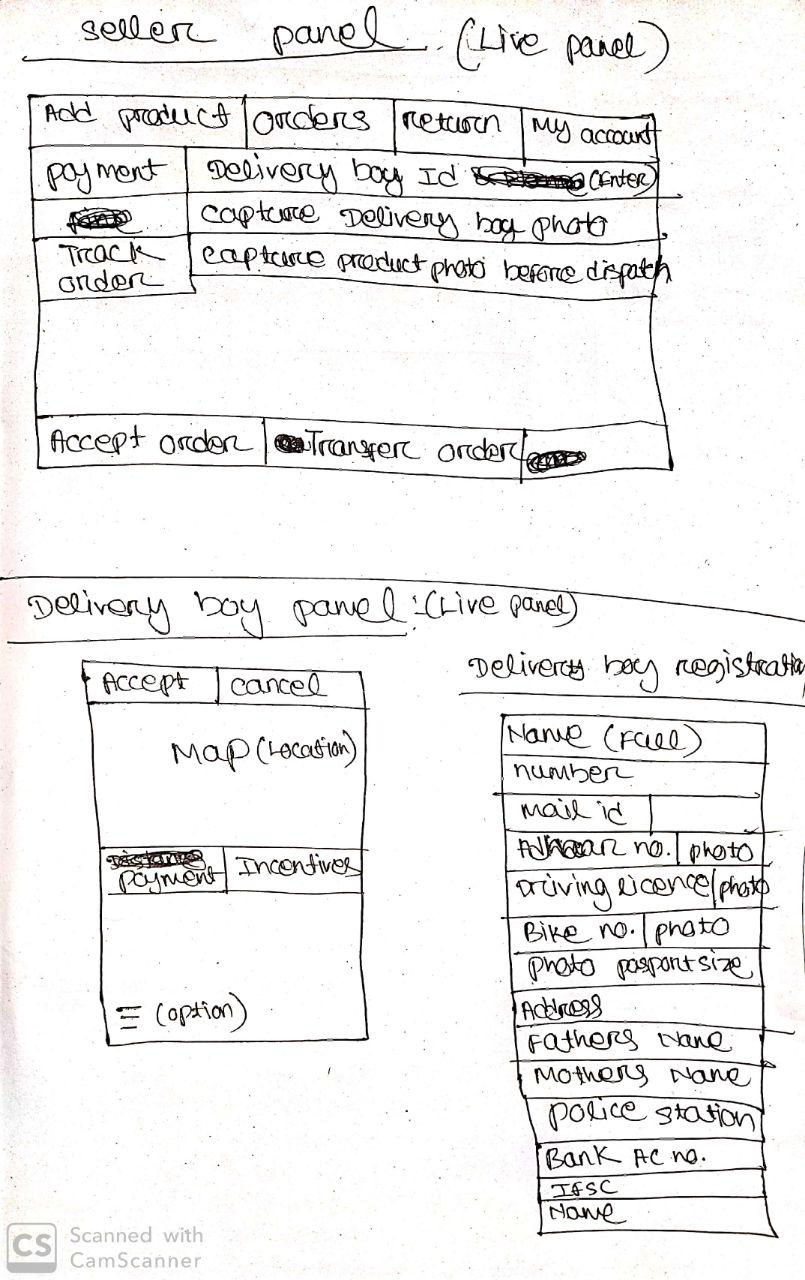 seller panel (Live panel)
Add product orders return My account
payment Delivery boy Id (Enter)
capture Delivery boy photo
Track order capture product photo before dispatch
Accept order Transfer order
Delivery boy panel :(Live panel)
Accept cancel
Map (Location)
payment Incentives
(option)
Delivery boy registration
Name (Full)
number
Mail id
Adhaar no. photo
Driving licence photo
Bike no. photo
photo pasport size
Address
Fathers Name
Mothers Name
police station
Bank AC no.
IFSC
Name
CS Scanned with
CamScanner